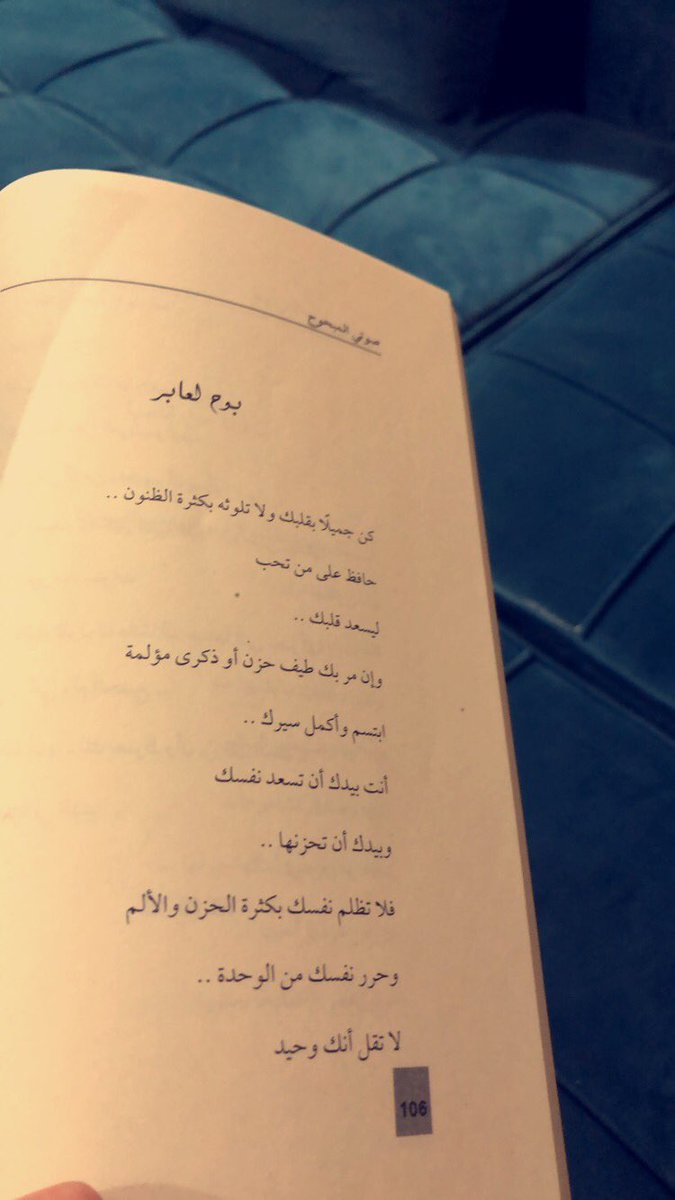 صوتي المبحوح
بوح لعابر
كن جميلًا بقلبك ولا تلوثه بكثرة الظنون ..
حافظ على من تحب
ليسعد قلبك ..
وإن مر بك طيف حزن أو ذكرى مؤلمة
ابتسم وأكمل سيرك ..
أنت بيدك أن تسعد نفسك
وبيدك أن تحزنها ..
فلا تظلم نفسك بكثرة الحزن والألم
وحرر نفسك من الوحدة ..
لا تقل أنك وحيد
106